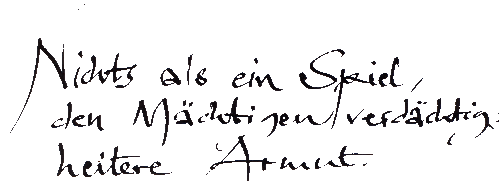 Nichts als ein Spiel,
den Mächtigen verdächtig.
heitere Armut.